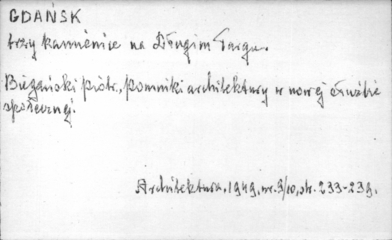 GDAŃSK
trzy kamienice na Długim Targu.
Biegański Piotr, Pomniki architektury w nowej służbie
społecznej.
Architektura, 1949, nr. 9/10, str. 233-239.